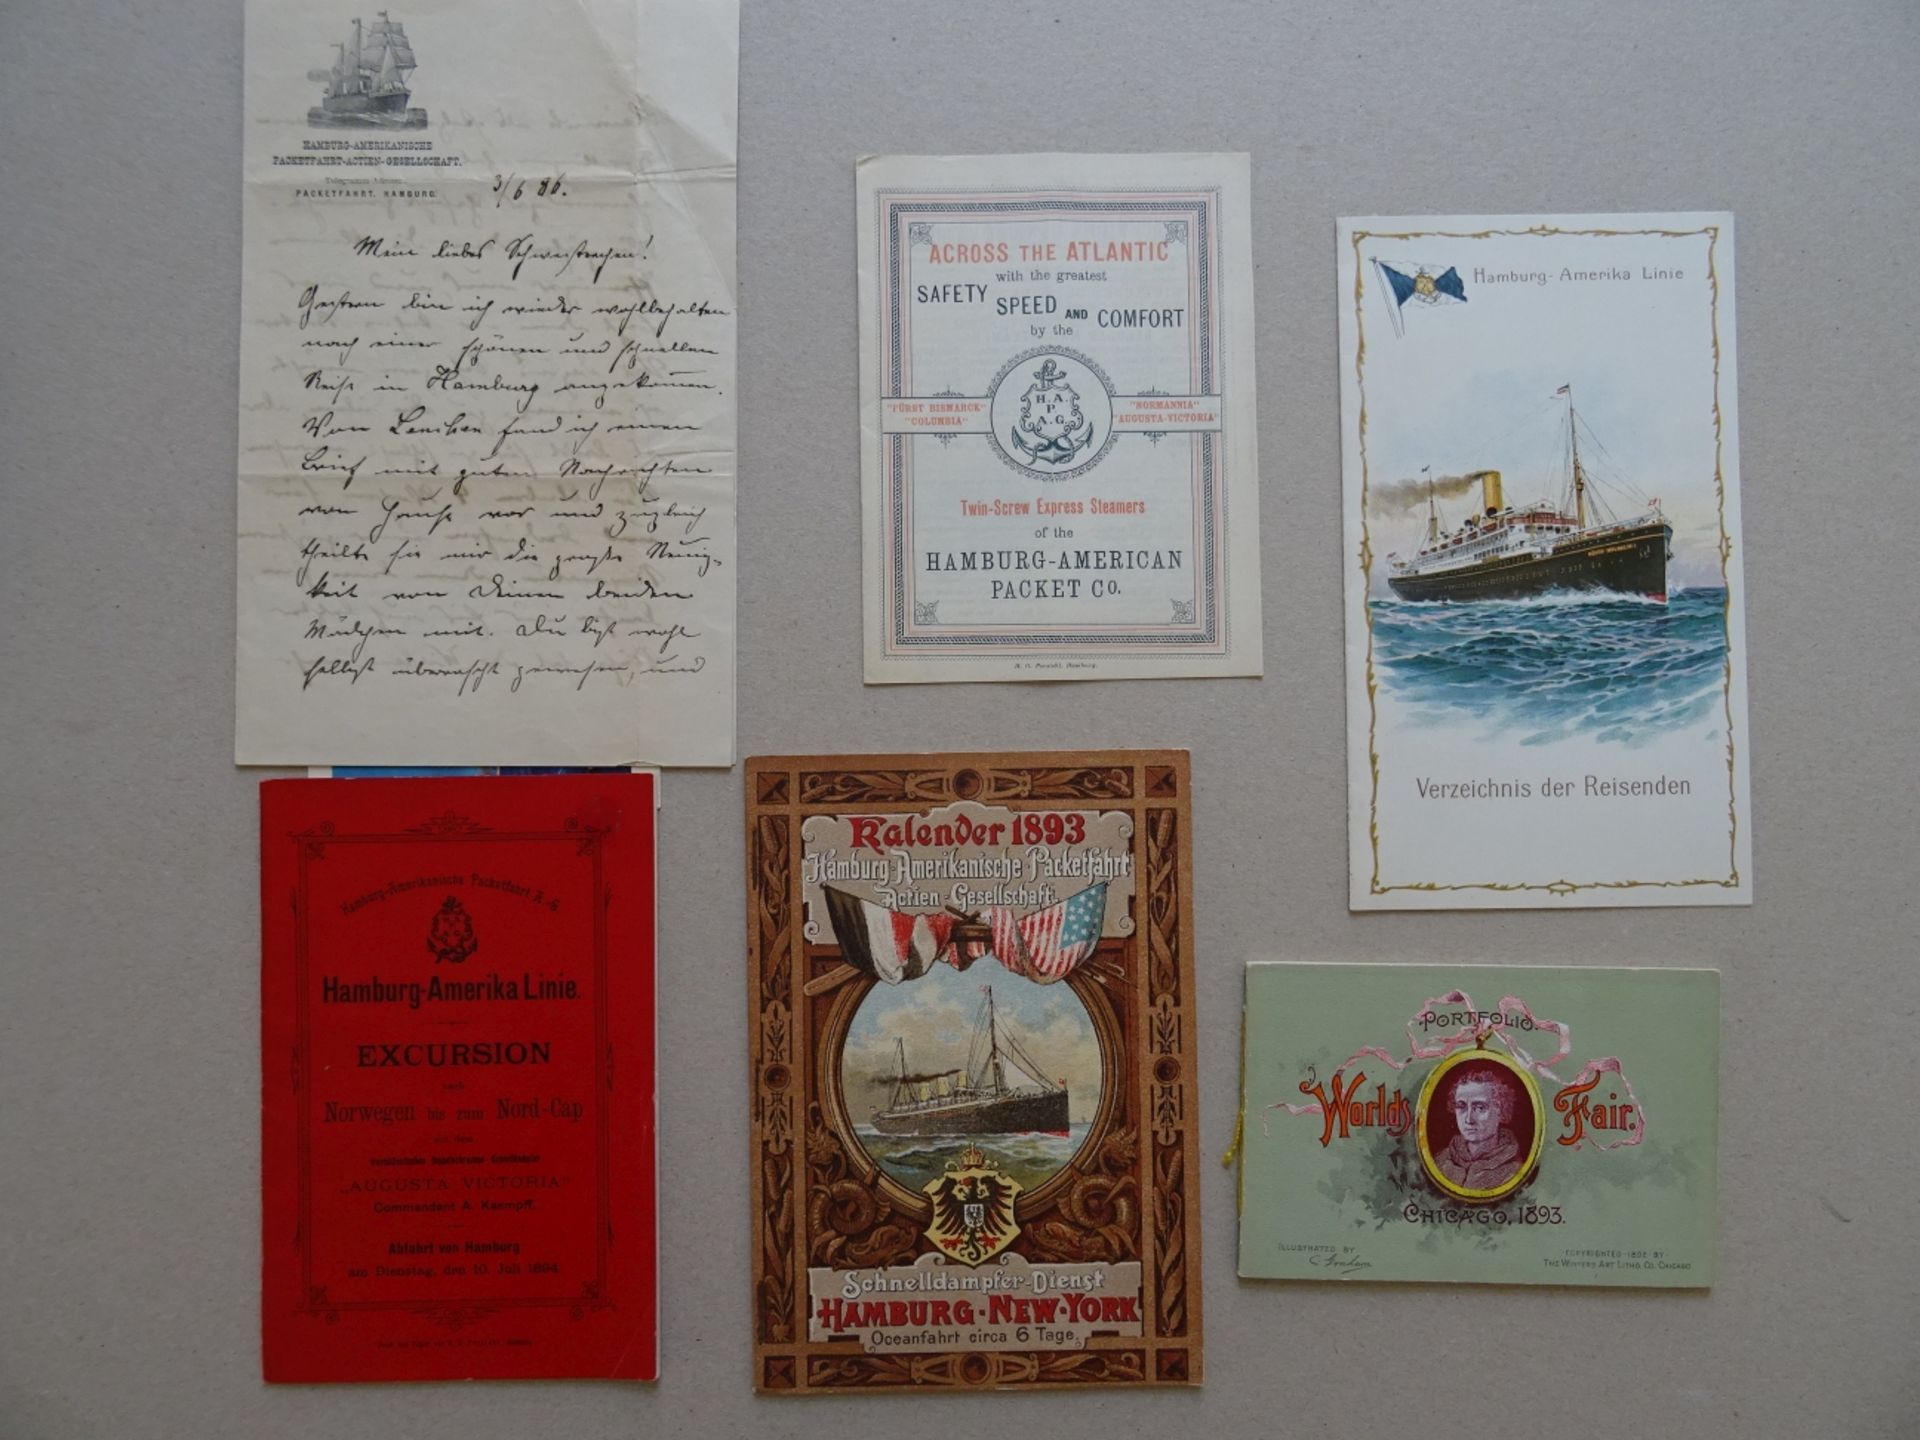 HAMBURG-AMERIKANISCHE
PACKETFAHRT-ACTIEN-GESELLSCHAFT.
PACKETFAHRT, HAMBURG.
3/6 86.
Mein liebes Schwesterchen!
Gestern bin ich wieder wohlbehalten
nach einer schönen und schnellen
Reise in Hamburg angekommen.
Von Lenchen fand ich einen
Brief mit guten Nachrichten
von Hause vor und zugleich
theilte sie mir die große Neuig-
keit von Deinen beiden
Mädchen mit. Du bist wohl
selbst überrascht gewesen, und
ACROSS THE ATLANTIC
with the greatest
SAFETY SPEED AND COMFORT
by the
"FÜRST BISMARCK"
"COLUMBIA"
H. A.
P.
A. G.
"NORMANNIA"
"AUGUSTA-VICTORIA"
Twin-Screw Express Steamers
of the
HAMBURG-AMERICAN
PACKET CO.
Hamburg-Amerika Linie
Verzeichnis der Reisenden
Hamburg-Amerikanische Packetfahrt A.-G.
Hamburg-Amerika Linie.
EXCURSION
nach
Norwegen bis zum Nord-Cap
mit dem
Doppelschrauben-Schnelldampfer
„AUGUSTA VICTORIA"
Commandant A. Kaempff.
Abfahrt von Hamburg
am Dienstag, den 10. Juli 1894.
Kalender 1893
Hamburg-Amerikanische Packetfahrt
Actien-Gesellschaft.
Schnelldampfer-Dienst
HAMBURG-NEW-YORK
Oceanfahrt circa 6 Tage.
PORTFOLIO.
Worlds Fair.
CHICAGO, 1893.
ILLUSTRATED BY
C. Graham
COPYRIGHTED 1892 BY
THE WINTERS ART LITHO. CO. CHICAGO